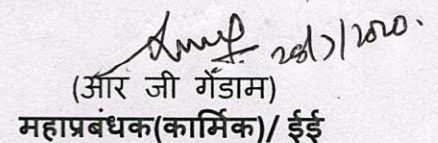 20/7/2020.
(आर जी गेंडाम)
महाप्रबंधक(कार्मिक)/ ईई